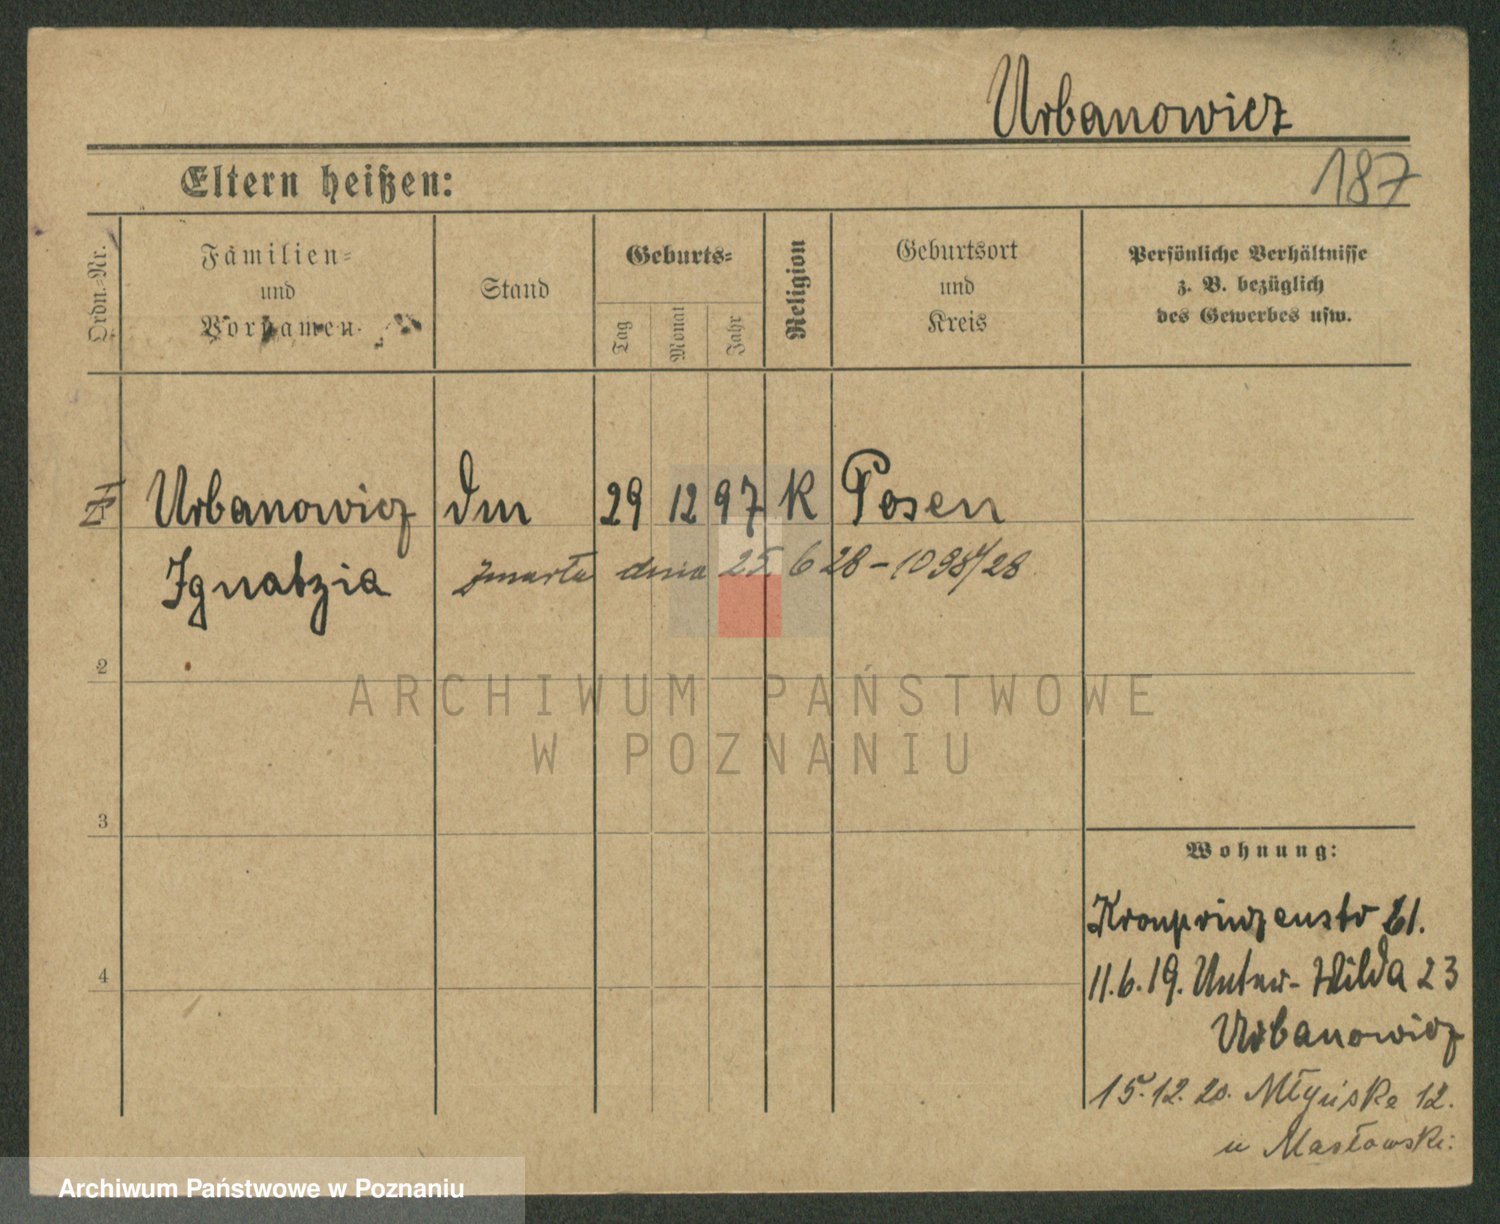 Urbanowicz
187
Eltern heißen:
Ordn.-Nr.
Familien-
und
Vornamen
Stand
Geburts-
Tag
Monat
Jahr
Religion
Geburtsort
und
Kreis
Persönliche Verhältnisse
z. B. bezüglich
des Gewerbes usw.
Urbanowicz
29 12 97 K Posen
Ignatzia
zmarła dnia 25 6 28 - 1098/28
2
3
4
Wohnung:
Kronprinzenstr
11.6.19. Unter-Wilda 23
Urbanowicz
15.12.20. Młyńska 12.
u Masłowski
ARCHIWUM PAŃSTWOWE
W POZNANIU
Archiwum Państwowe w Poznaniu